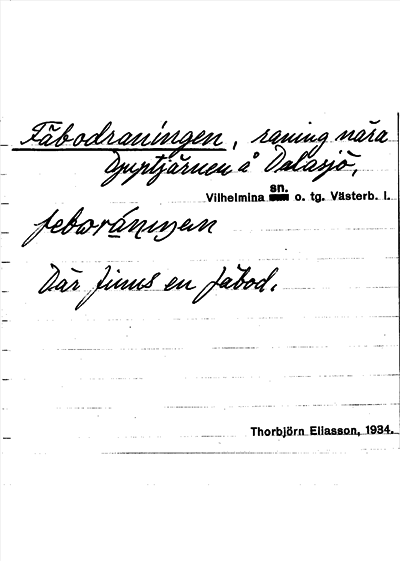 Fäbodraningen, raning nära
Djuptjärnen å Dalasjö,
Vilhelmina sn. o. tg. Västerb. l.
feboráningen
Där finns en fäbod.
Thorbjörn Eliasson, 1934.